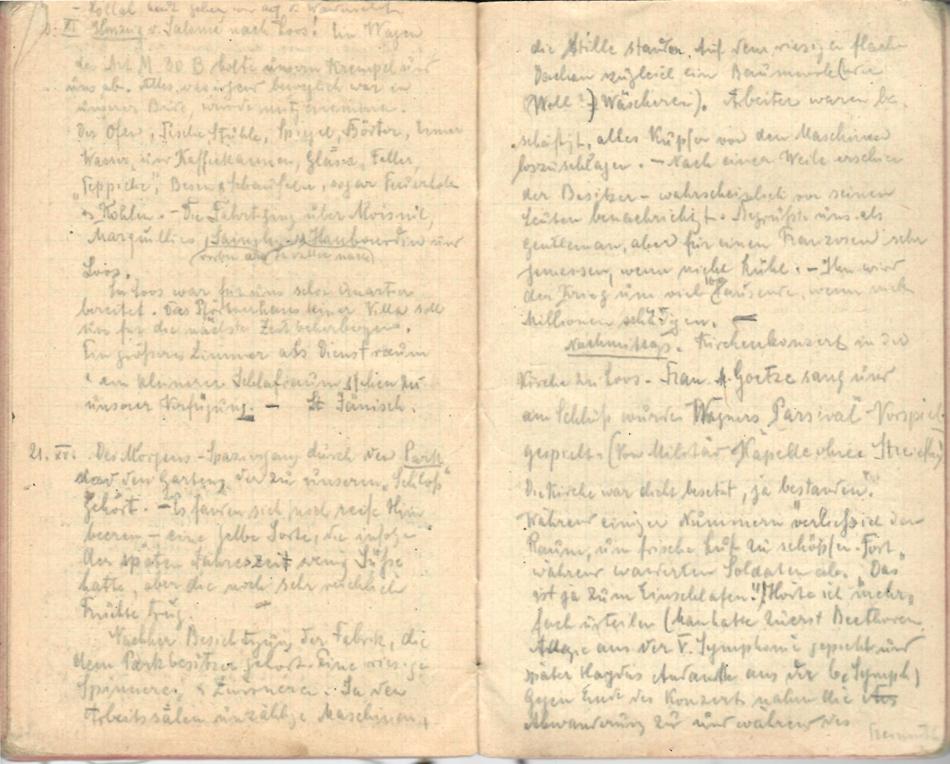 20. XI. Umzug v. Salomé nach Loos! Ein Wagen
der Art. M. 30 B holte unsern Krempel und
uns ab. Alles, was irgend beweglich war in
unserer Bude, wurde mitgenommen.
Der Ofen, Tische, Stühle, Spiegel, Börter, Eimer
Wasser und Kaffeekannen, Gläser, Teller,
"Teppiche", Besen, sogar Feuerholz
u. Kohlen. - Die Fahrt ging über Moisnil,
Marquillies, Sainghin, Haubourdin und
Loos.
In Loos war für uns schon Quartier
bereitet. Das Pförtnerhaus einer Villa soll
uns für die nächste Zeit beherbergen.
Ein größeres Zimmer als Dienstraum
u. ein kleinerer Schlafraum stehen zu
unserer Verfügung. - Jänisch.
21. XI. Des Morgens - Spaziergang durch den Park
und den Garten, der zu unserem "Schloß"
gehört. - Es fanden sich noch reife Him
beeren - eine gelbe Sorte, die infolge
der späten Jahreszeit wenig Süße
hatte, aber die noch sehr reichlich
Früchte trug.
Nachher Besichtigung der Fabrik, die
dem Parkbesitzer gehört. Eine riesige
Spinnerei & Zwirnerei. In den
Arbeitssälen unzählige Maschinen,
die stille standen. Auf dem riesigen flachen
Dachen zugleich ein Baumwoll (oder
Woll?) Wäscherei). Arbeiter waren be-
schäftigt, alles Kupfer von den Maschinen
loszuschlagen. - Nach einer Weile erschien
der Besitzer - wahrscheinlich von seinen
Leuten benachrichtigt. Begrüßte uns als
gentleman, aber für einen Franzosen sehr
gemessen, wenn nicht kühl. - Ihn wird
der Krieg um viel 100 Tausende, wenn nicht
Millionen schädigen. -
Nachmittags. Kirchenkonzert in der
Kirche zu Loos. Frau Goetze sang und
am Schluß wurde Wagners "Parsival"-Vorspiel
gespielt. (Von Militär-Kapelle ohne Streicher)
Die Kirche war dicht besetzt, ja "bestanden".
Während einiger Nummern verließ ich den
Raum, um frische Luft zu schöpfen. Fort-
während wanderten Soldaten ab. "Das
ist ja zum Einschlafen!" Hörte ich mehr-
fach urteilen (Man hatte zuerst Beethoven
Adagio aus der V. Symphonie gespielt und
später Haydns Andante aus der 6. Symph.)
Gegen Ende des Konzerts nahm die
Abwanderung zu und während des